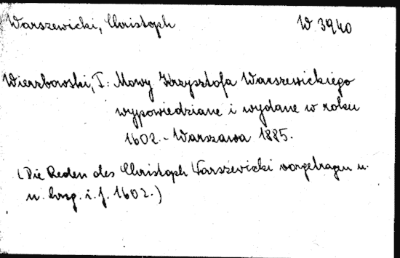 Warszewicki, Christoph W 3940
Wierzbowski, T: Mowy Krzysztofa Warszewickiego
wypowiedziane i wydane w roku
1602. - Warszawa 1885.
(Die Reden des Christoph Warszewicki vorgetragen u.
u. hrsg. i. J. 1602.)